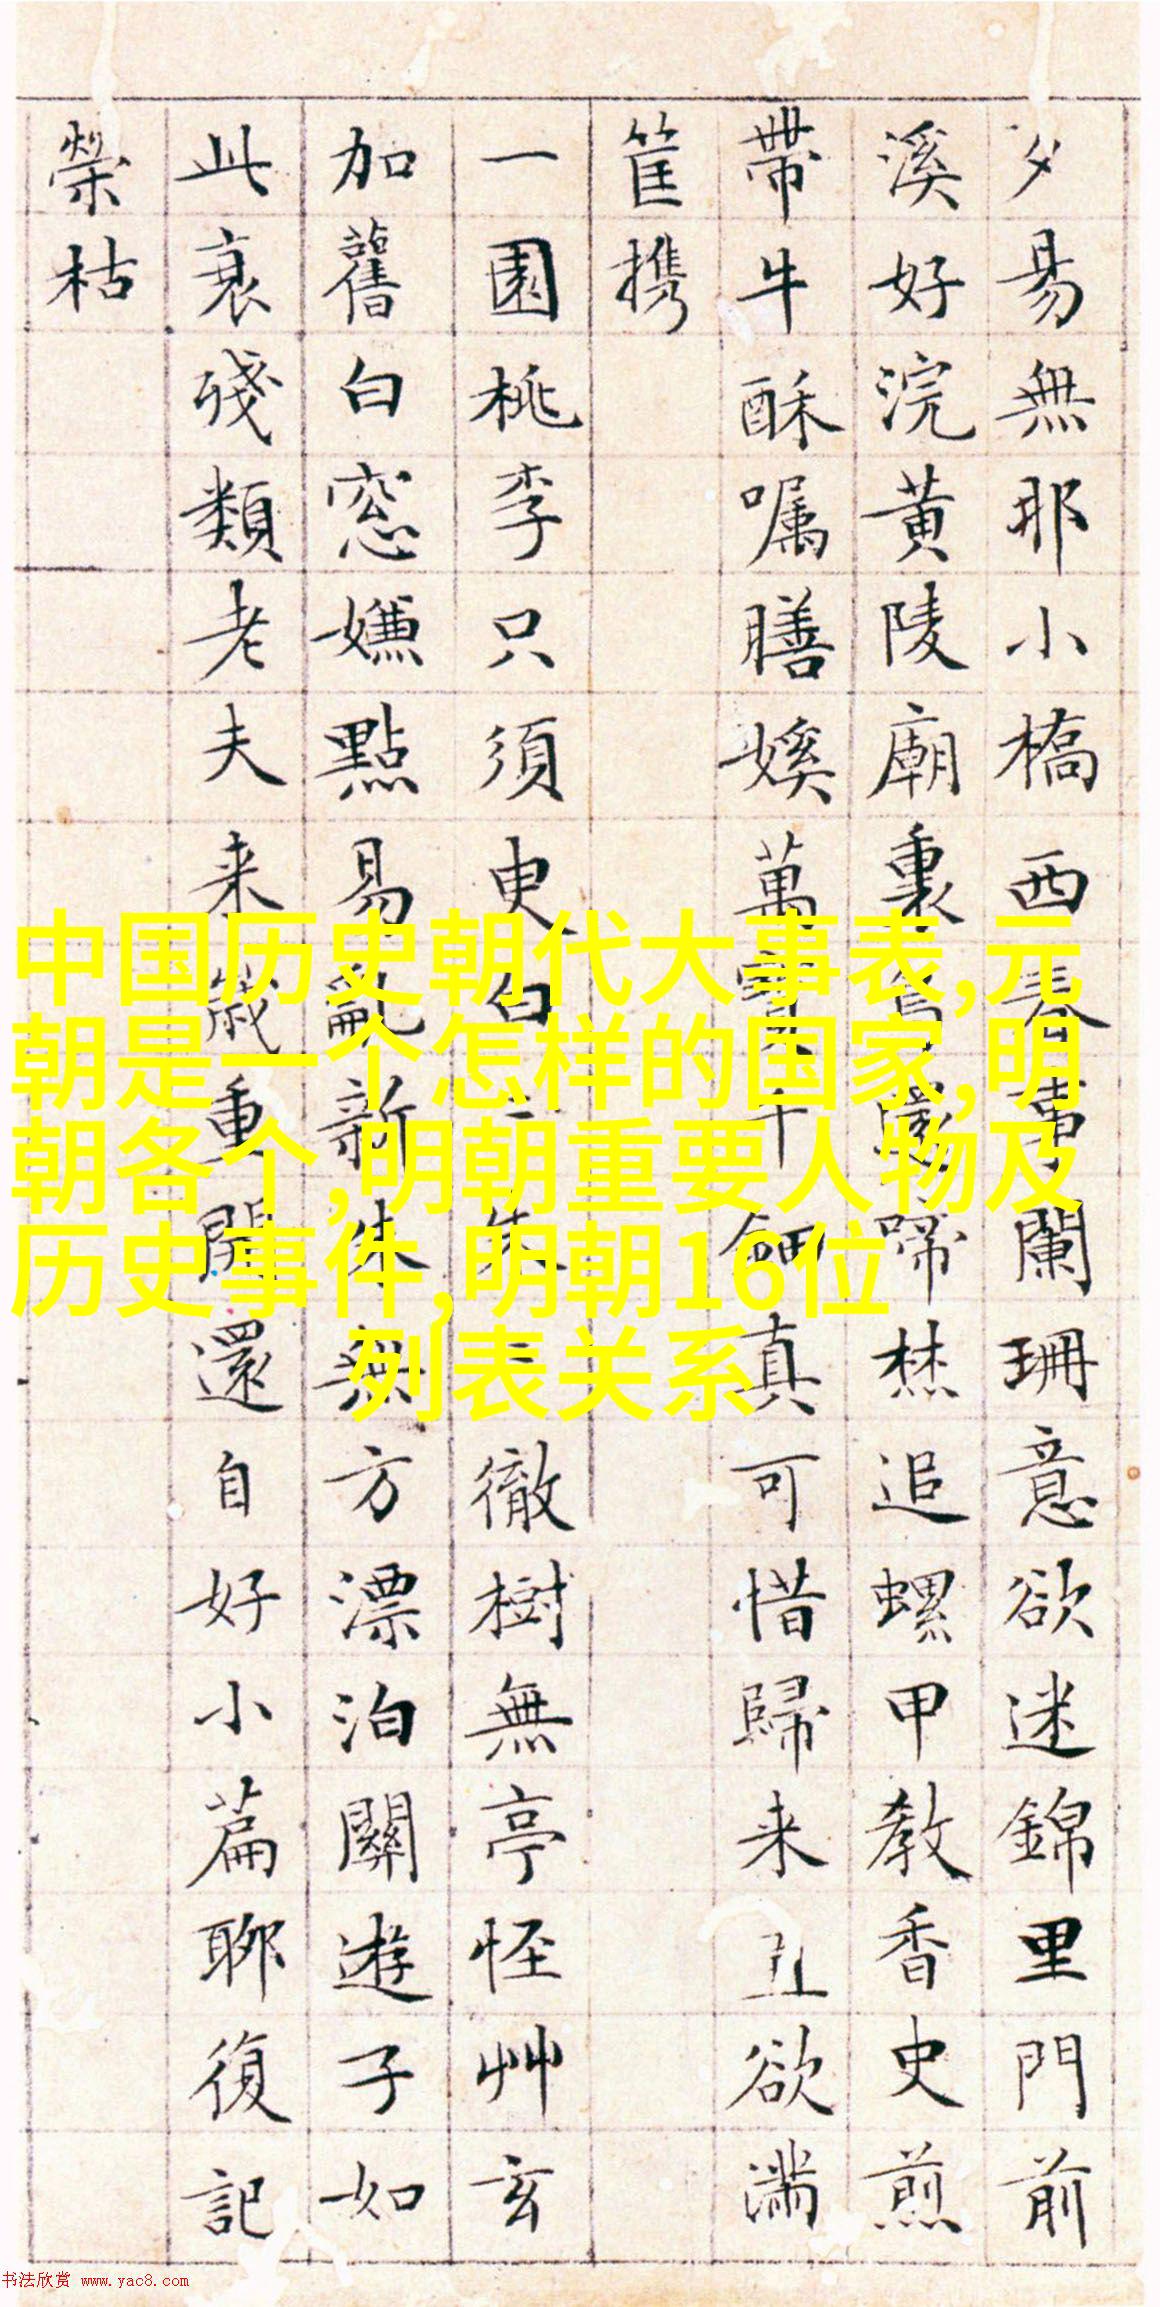 夕昜無耶小橋西春事闌珊意欲迷錦里門前
溪好浣黃陵廟裏啼追螺甲教香史煎
帶牛酥嘱膳萬寶千鈿真可惜歸来丑欲滿
筐携
一園桃李只須臾白二朱二徹樹無亭怪艸玄
加舊白窓嫌點易亂新朱無方漂泊關遊子如
此衰殘類老夫来歲重開還自好小篇聊復記
榮枯
中国历史朝代大事表,元
朝是一个怎样的国家,明
朝各个,明朝重要人物及
历史事件,明朝16位
列表关系
书法欣赏 www.yac8.com